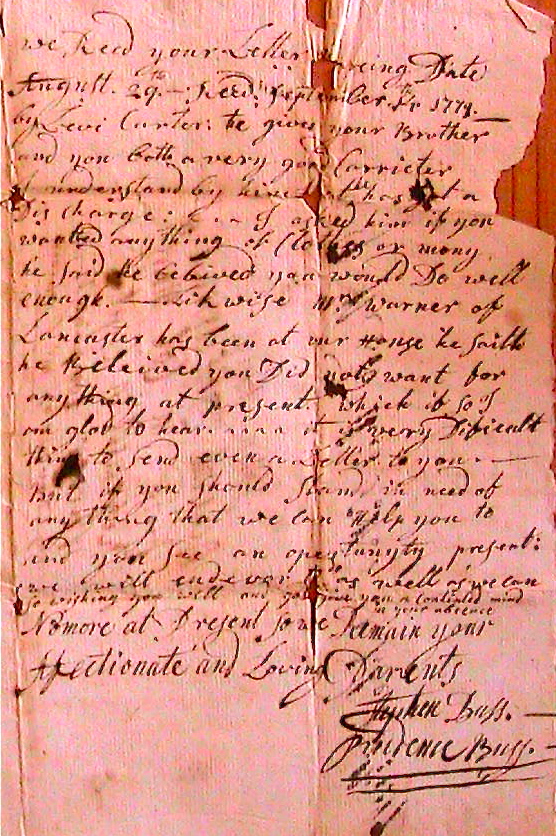 we Recd your Letter Bearing Date
August. 29th — Recd. September Ye 1779.
by Levi Carter: he gives your Brother
and you both a very good Carricter
I understand by him he has got a
Discharge: I asked him if you
wanted anything of Cloths or mony
he said he beleived you would Do well
enough. — Likwise Mr. Warner of
Lancaster has been at our House he saith
he Beleived you Did not want for
anything at present. which if so I
am glad to hear it is very Dificult
thing to send even a Letter to you —
But if you should stand in need of
any thing that we can Help you to
and you See an opertunyty present:
we will endevor it as well as we can
So wishing you well and you a contented mind
in your absence
No more at Present so we Remain your
Affectionate and Loving Parents
Stephen Buss. —
Prudence Buss.